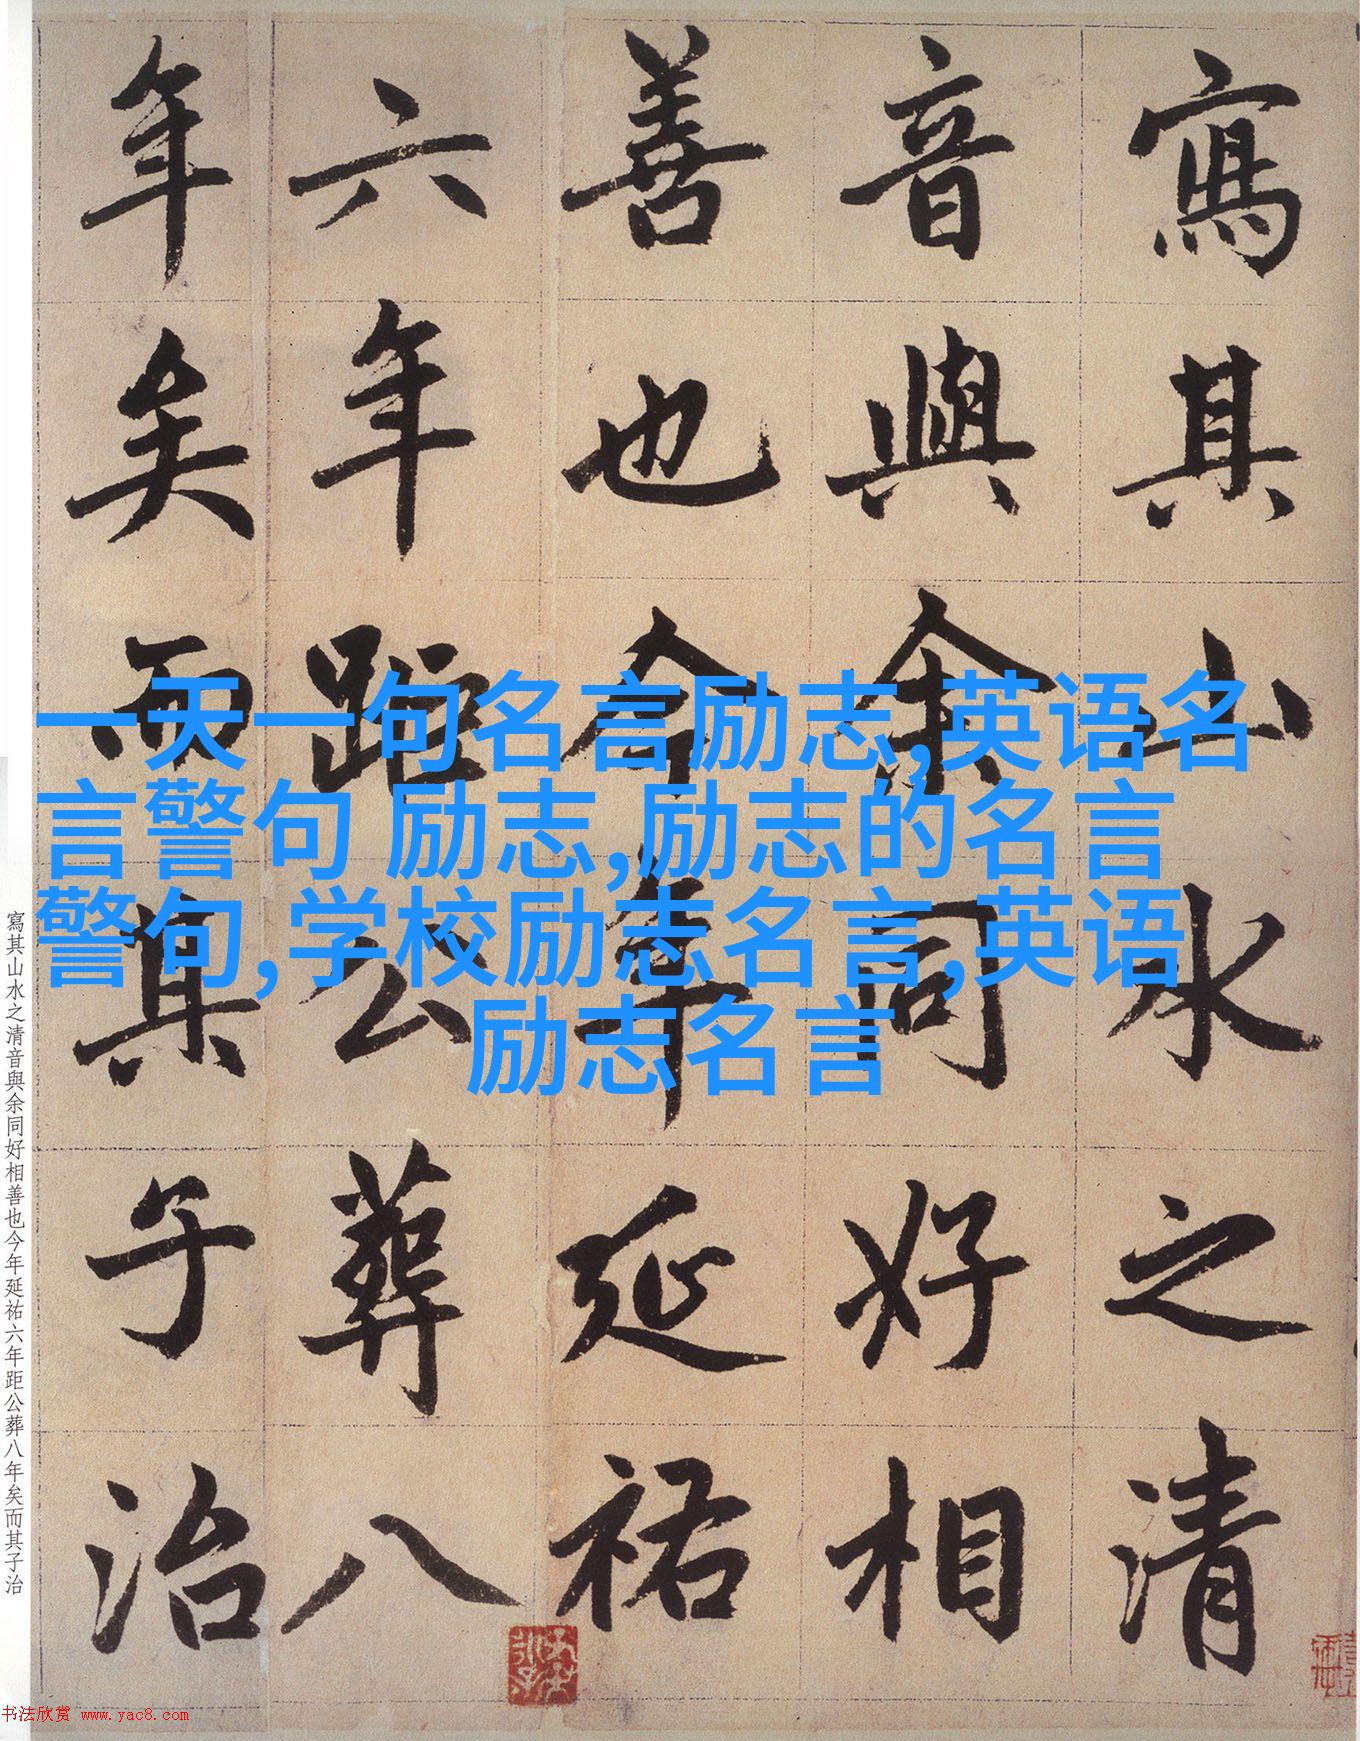 寫其山水之清
音與余同好相
善也今年延祐
六年距公葬八
年矣而其子治
一天一句名言励志,英语名
言警句 励志,励志的名言
警句,学校励志名言,英语
励志名言
寫其山水之清音與余同好相善也今年延祐六年距公葬八年矣而其子治
书法欣赏 www.yac8.com